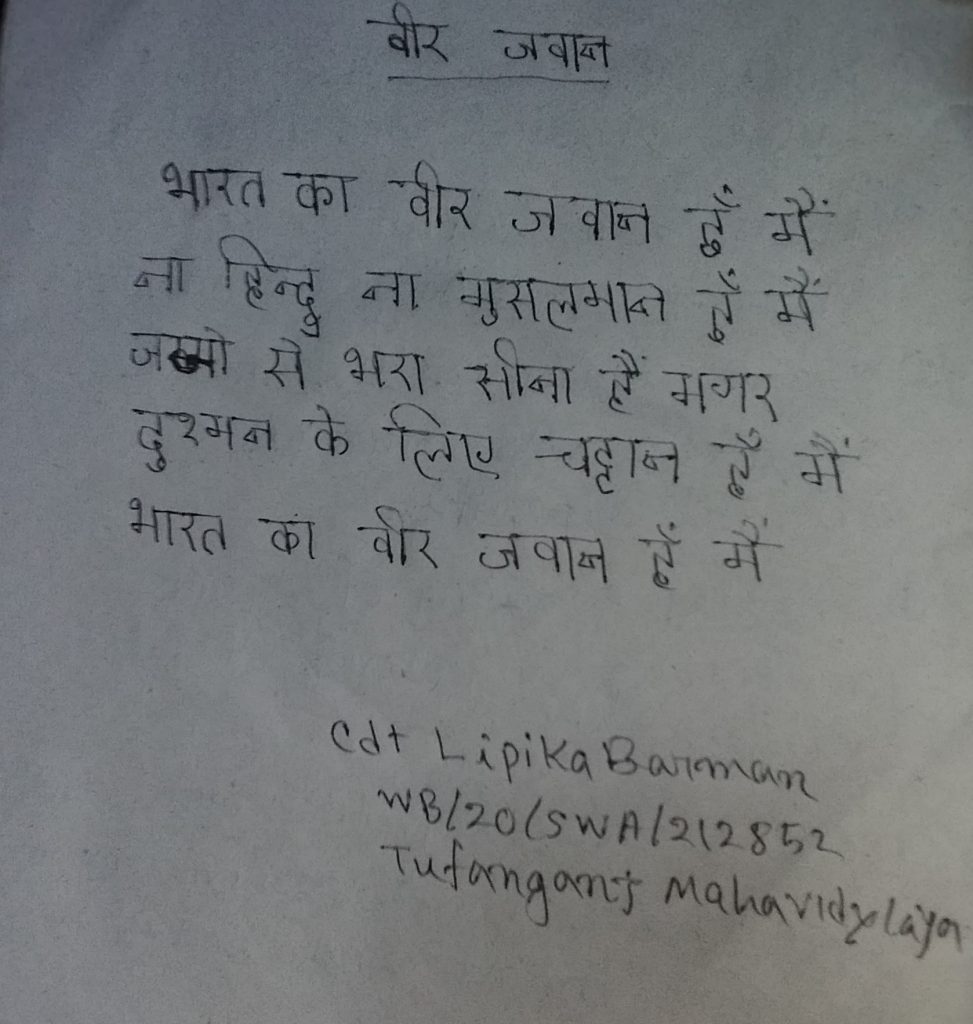 वीर जवान
भारत का वीर जवान हूँ मैं
ना हिन्दु ना मुसलमान हूँ मैं
जख्मो से भरा सीना हैं मगर
दुश्मन के लिए चट्टान हूँ मैं
भारत का वीर जवान हूँ मैं
Cdt Lipika Barman
WB/20/SWA/212852
Tufanganj Mahavidyalaya